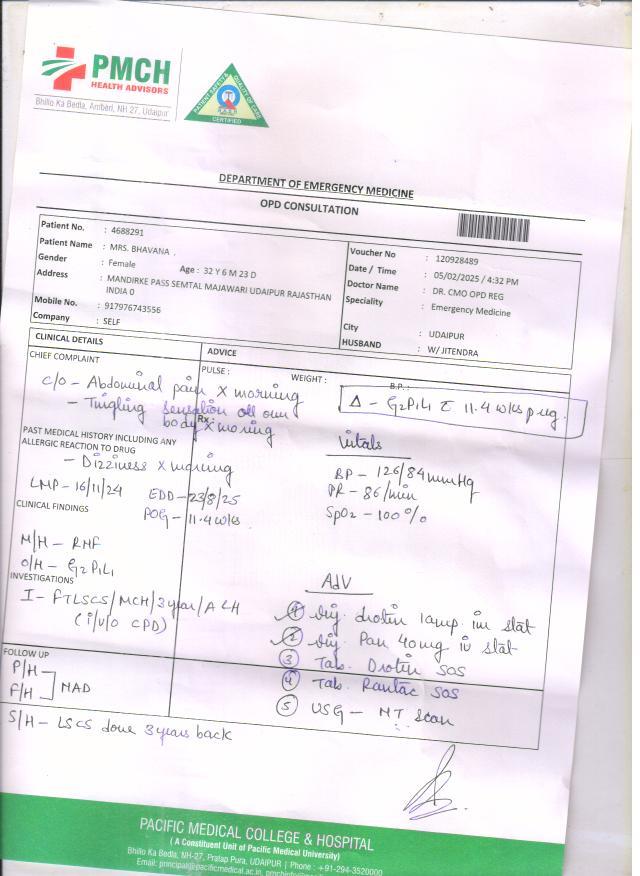 PMCH
HEALTH ADVISORS
Bhilo Ka Bedla, Amberi, NH-27, Udaipur
PATIENT SAFETY & QUALITY OF CARE
CERTIFIED
DEPARTMENT OF EMERGENCY MEDICINE
OPD CONSULTATION
Patient No. : 4688291
Patient Name : MRS. BHAVANA .
Gender : Female Age : 32 Y 6 M 23 D
Address : MANDIRKE PASS SEMTAL MAJAWARI UDAIPUR RAJASTHAN
INDIA 0
Mobile No. : 917976743556
Company : SELF
Voucher No : 120928489
Date / Time : 05/02/2025 / 4:32 PM
Doctor Name : DR. CMO OPD REG
Speciality : Emergency Medicine
City : UDAIPUR
HUSBAND : W/ JITENDRA
CLINICAL DETAILS
ADVICE
CHIEF COMPLAINT
PULSE :
WEIGHT :
B.P. :
c/o - Abdominal pain X morning
- Tingling sensation all over
body X morning
Rx :
Δ - G2P1L1 c 11.4 wks preg.
PAST MEDICAL HISTORY INCLUDING ANY
ALLERGIC REACTION TO DRUG
- Dizziness X morning
LMP - 16/11/24
EDD - 23/8/25
POG - 11.4 wks
Vitals
BP - 126/84 mmHg
PR - 86/min
SpO2 - 100%
CLINICAL FINDINGS
M/H - RMF
O/H - G2P1L1
INVESTIGATIONS
I - FTLSCS/MCH/3 year/ALH
(i/v/o CPD)
Adv
1 Inj. Drotin 1amp im stat
2 Inj. Pan 40mg iv stat
3 Tab. Drotin SOS
4 Tab. Rantac SOS
5 USG - NT Scan
FOLLOW UP
P/H
F/H ] NAD
S/H - LSCS done 3 years back
PACIFIC MEDICAL COLLEGE & HOSPITAL
( A Constituent Unit of Pacific Medical University)
Bhilo Ka Bedla, NH-27, Pratap Pura, UDAIPUR | Phone : +91-294-3520000
Email: principal@pacificmedical.ac.in,